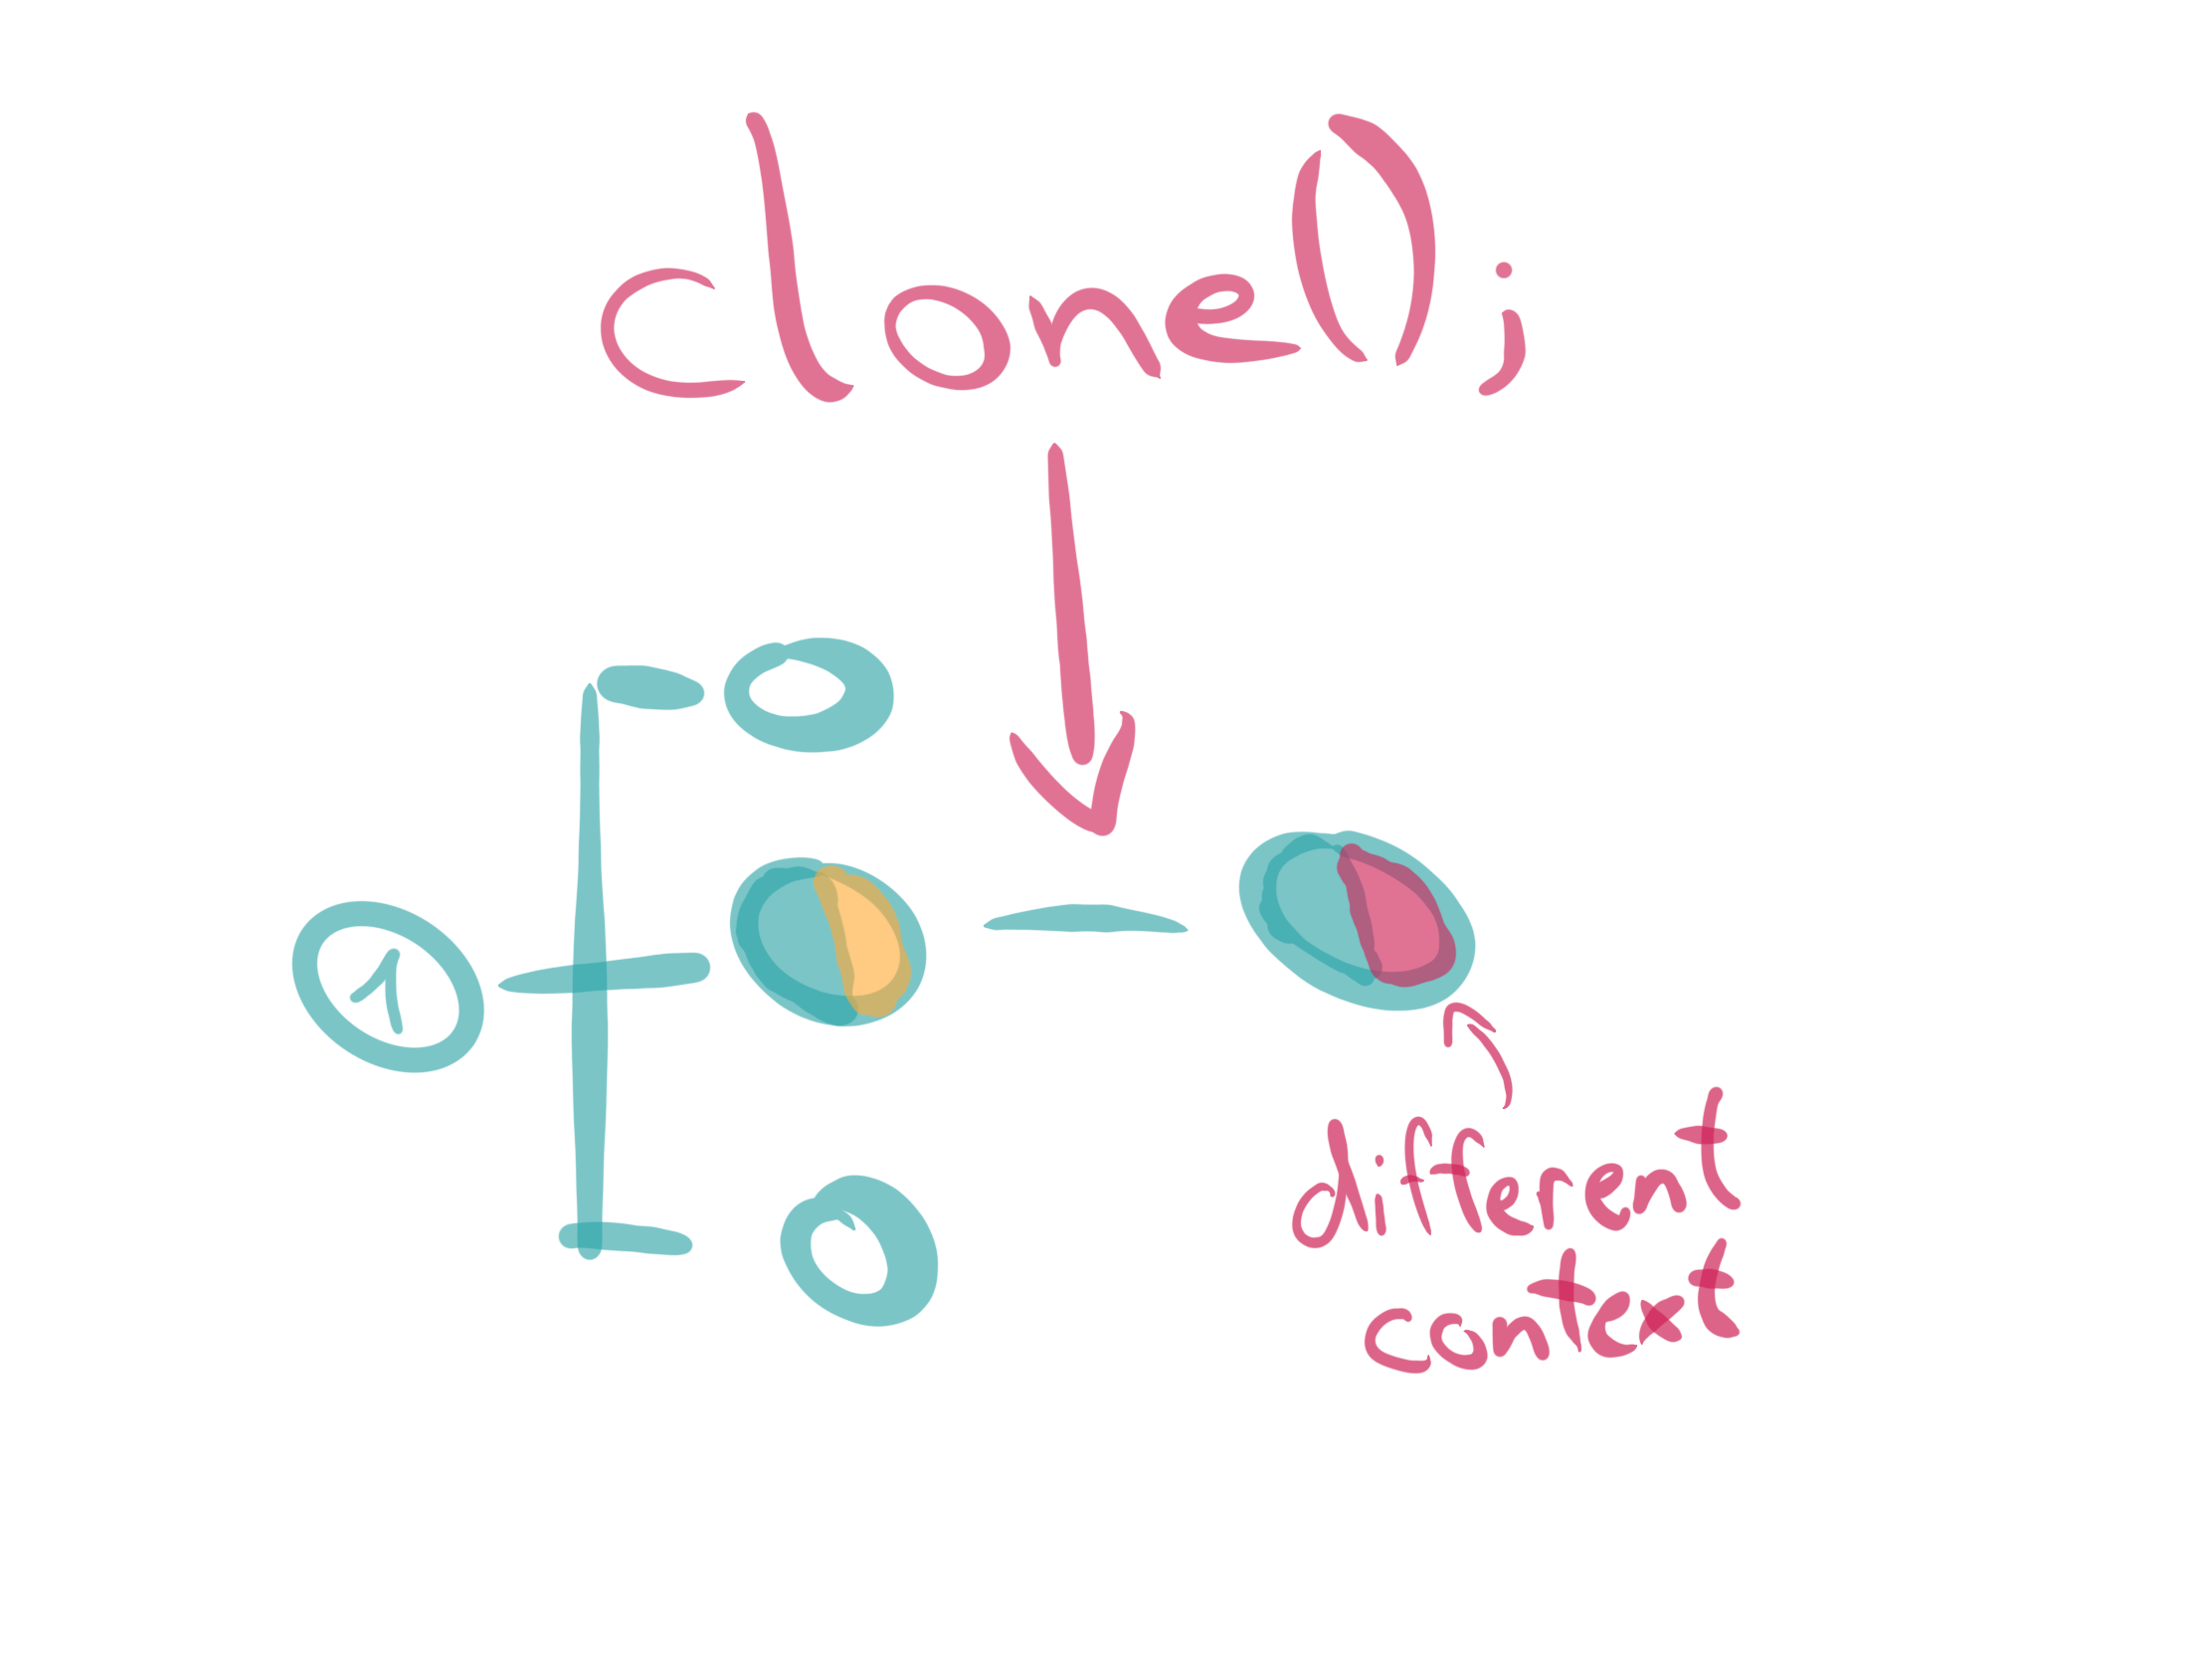 clone();
1
different
context